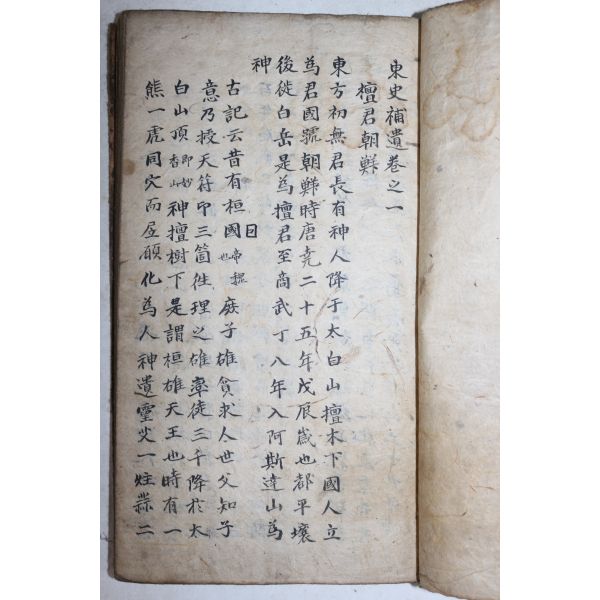 東史補遺卷之一
檀君朝鮮
東方初無君長有神人降于太白山檀木下國人立
為君國號朝鮮時唐堯二十五年戊辰歲也都平壤
後徙白岳是為檀君至商武丁八年入阿斯達山為
神
古記云昔有桓國帝釋也庶子雄貪求人世父知子
意乃授天符印三箇徃理之雄率徒三千降於太
白山頂即妙香山神檀樹下是謂桓雄天王也時有一
熊一虎同穴而居願化為人神遺靈艾一炷蒜二